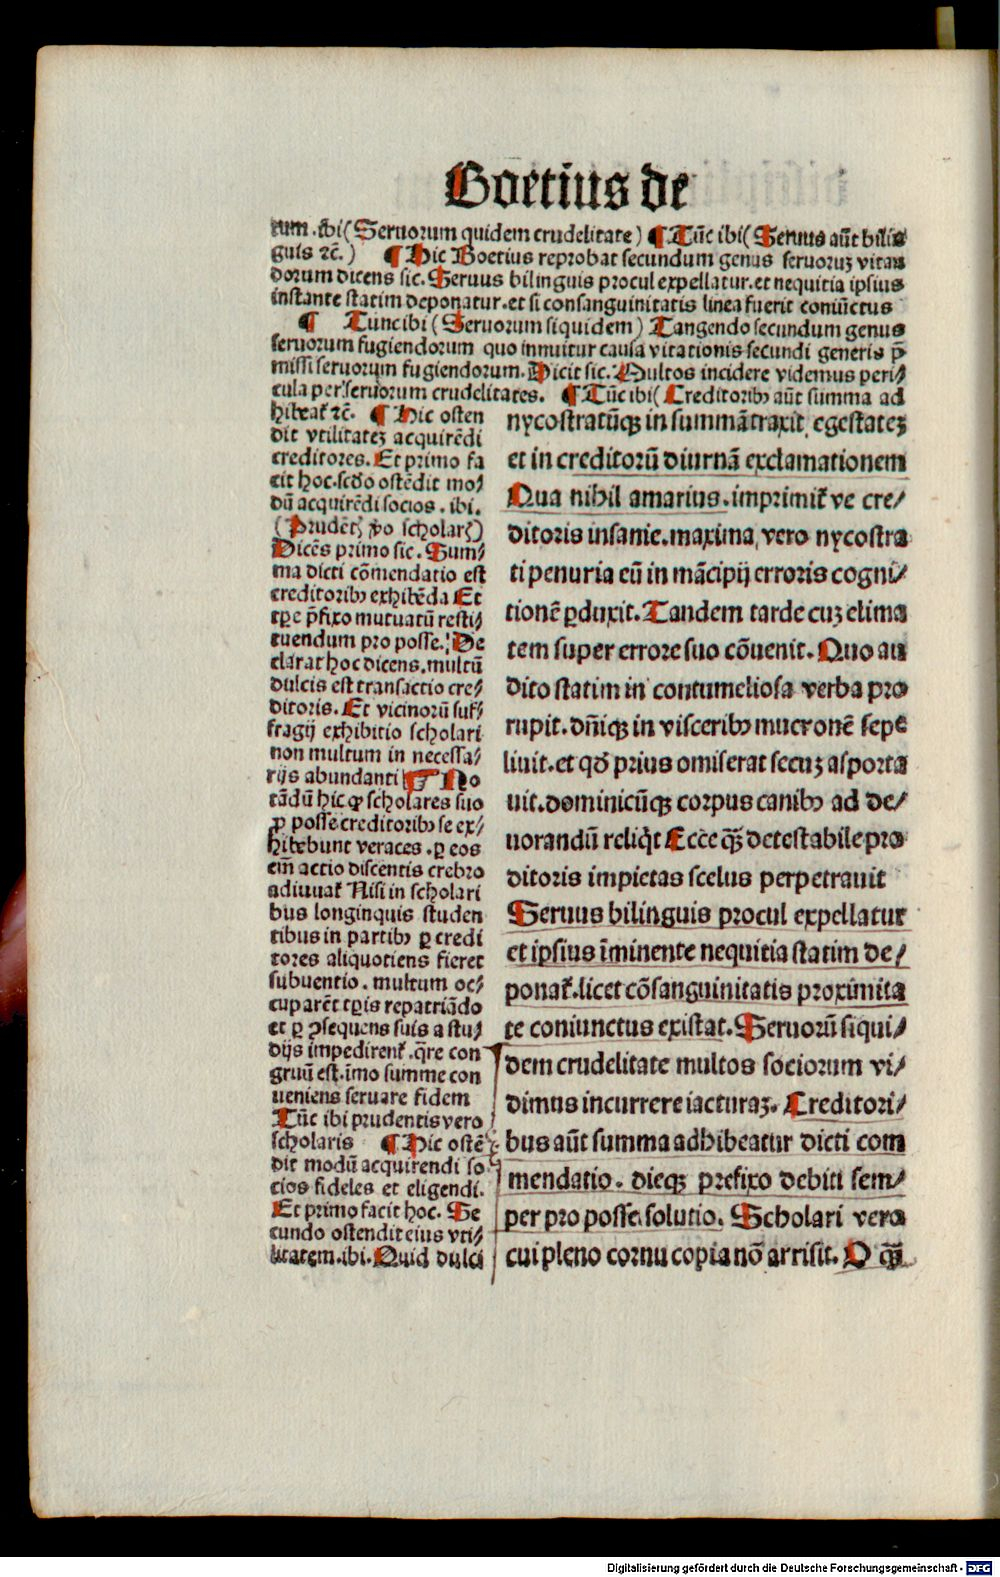 Boetius de
rum .ibi (Seruorum quidem crudelitate) ¶ Tūc ibi (Seruus aūt bilin
guis ꝛc̄.) ¶ Hic Boetius reprobat secundum genus seruoruꝫ vitan
dorum dicens sic. Seruus bilinguis procul expellatur.et nequitia ipsius
instante statim deponatur.et si consanguinitatis linea fuerit coniūctus
¶ Tunc ibi (Seruorum siquidem) Tangendo secundum genus
seruorum fugiendorum quo innuitur causa vitationis secundi generis p̄
missi seruorum fugiendorum. Dicit sic. Multos incidere videmus peri⸗
cula per seruorum crudelitates. ¶ Tūc ibi (Creditoribꝰ aūt summa ad
hibeat᷑ ꝛc̄. ¶ Hic osten
dit vtilitateꝫ acquirēdi
creditores. Et primo fa
cit hoc. scd̄o ostēdit mo⸗
dū acquirēdi socios . ibi.
(Prudēt; ꝟo scholar;)
Dicēs primo sic. Sum⸗
ma dicti cōmendatio est
creditoribꝰ exhibēda Et
tꝑe p̄fixo mutuatū resti⸗
tuendum pro posse. De
clarat hoc dicens. multū
dulcis est transactio cre⸗
ditoris. Et vicinorū suf⸗
fragij exhibitio scholari
non multum in necessa⸗
rijs abundanti ¶ No
tādū hic ꝙ scholares suo
ꝓ posse creditoribꝰ se ex⸗
hibebunt veraces . ꝑ eos
eim̄ actio discentis crebro
adiuuat᷑ Nisi in scholari
bus longinquis studen
tibus in partibꝰ ꝑ credi
tores aliquotiens fieret
subuentio . multum oc⸗
cuparēt tꝑis repatriādo
et ꝑ ꝯsequens suis a stu⸗
dijs impedirent᷑ .q̄re con
gruū est.imo summe con
ueniens seruare fidem
Tūc ibi prudentis vero
scholaris ¶ Hic ostē
dit modū acquirendi so
cios fideles et eligendi.
Et primo facit hoc. Se
cundo ostendit eius vti⸗
litatem.ibi. Quid dulci
nycostratūqꝫ in summā traxit egestateꝫ
et in creditorū diurnā exclamationem
Qua nihil amarius.imprimit᷑ ve cre⸗
ditoris insanie.maxima vero nycostra
ti penuria eū in mācipij erroris cogni⸗
tionē ꝑduxit. Tandem tarde cuꝫ elima
tem super errore suo cōuenit. Quo au
dito statim in contumeliosa verba pro
rupit. dn̄iqꝫ in visceribꝰ mucronē sepe
liuit.et qd̄ prius omiserat secuꝫ asporta
uit.dominicūqꝫ corpus canibꝰ ad de⸗
uorandū reliq̇t Ecce q̄ꝫ detestabile pro
ditoris impietas scelus perpetrauit
Seruus bilinguis procul expellatur
et ipsius īminente nequitia statim de⸗
ponat᷑.licet cōsanguinitatis proximita
te coniunctus existat. Seruorū siqui⸗
dem crudelitate multos sociorum vi⸗
dimus incurrere iacturaꝫ. Creditori⸗
bus aūt summa adhibeatur dicti com
mendatio. dieqꝫ prefixo debiti sem⸗
per pro posse solutio. Scholari vero
cui pleno cornu copia nō arrisit. O q̄ꝫ
Digitalisierung gefördert durch die Deutsche Forschungsgemeinschaft - DFG